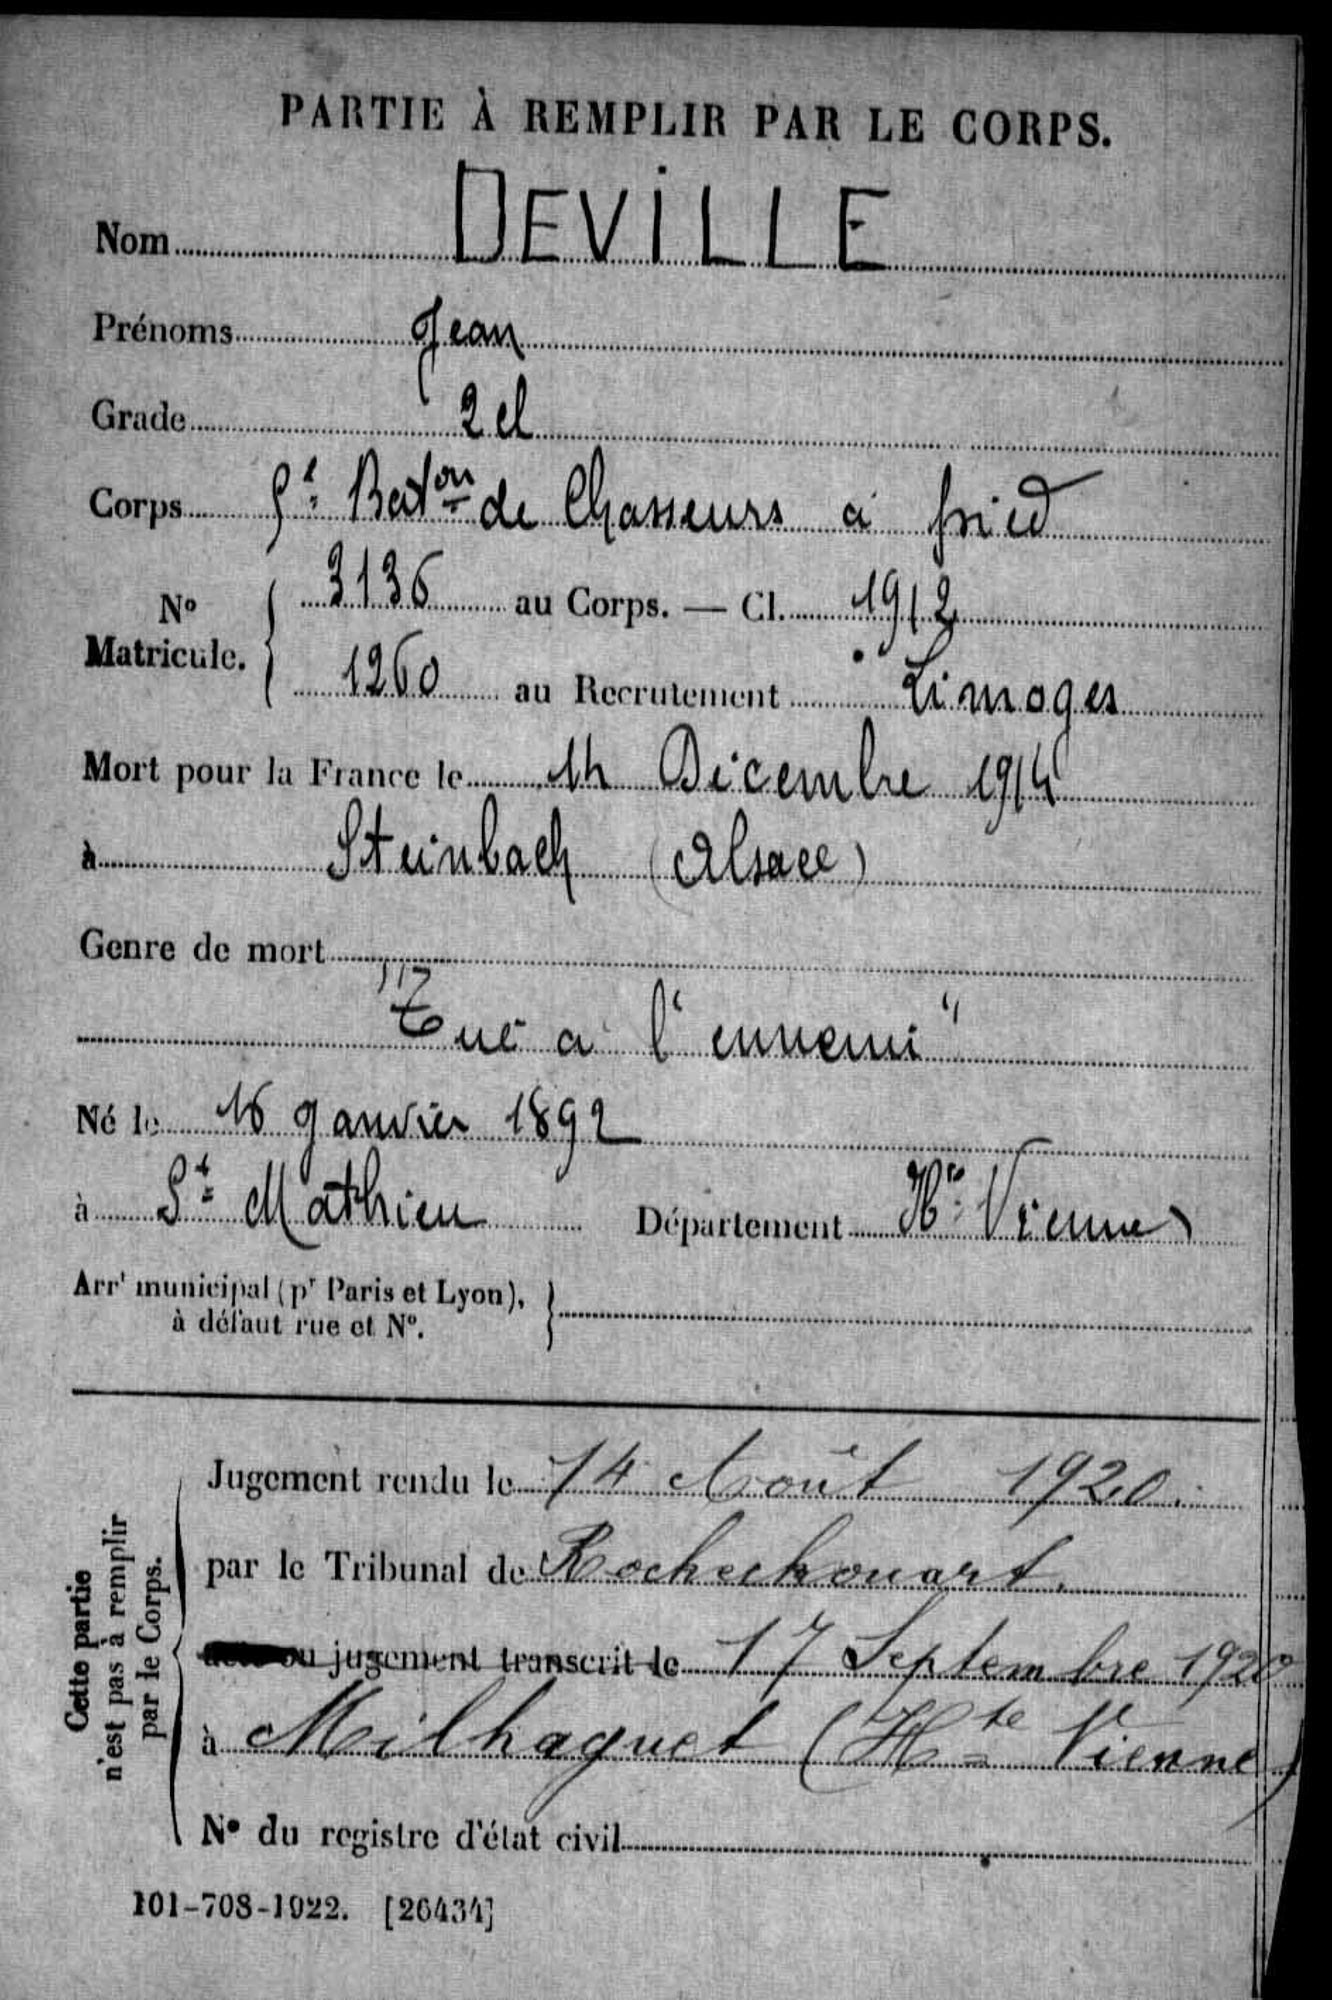 PARTIE À REMPLIR PAR LE CORPS.
Nom DEVILLE
Prénoms Jean
Grade 2 cl
Corps Bat^on de Chasseurs à pied
N° Matricule. 3136 au Corps. — Cl. 1912
1260 au Recrutement Limoges
Mort pour la France le 14 Décembre 1914
à Steinbach (Alsace)
Genre de mort
"Tué à l'ennemi"
Né le 16 Janvier 1892
à S^t Mathieu Département H^te Vienne
Arr^t municipal (p^r Paris et Lyon),
à défaut rue et N°.
Cette partie
n'est pas à remplir
par le Corps.
Jugement rendu le 14 Août 1920.
par le Tribunal de Rochechouart.
acte ou jugement transcrit le 17 Septembre 1920
à Milhaguet (H^te Vienne)
N° du registre d'état civil
101-708-1922. [26434]